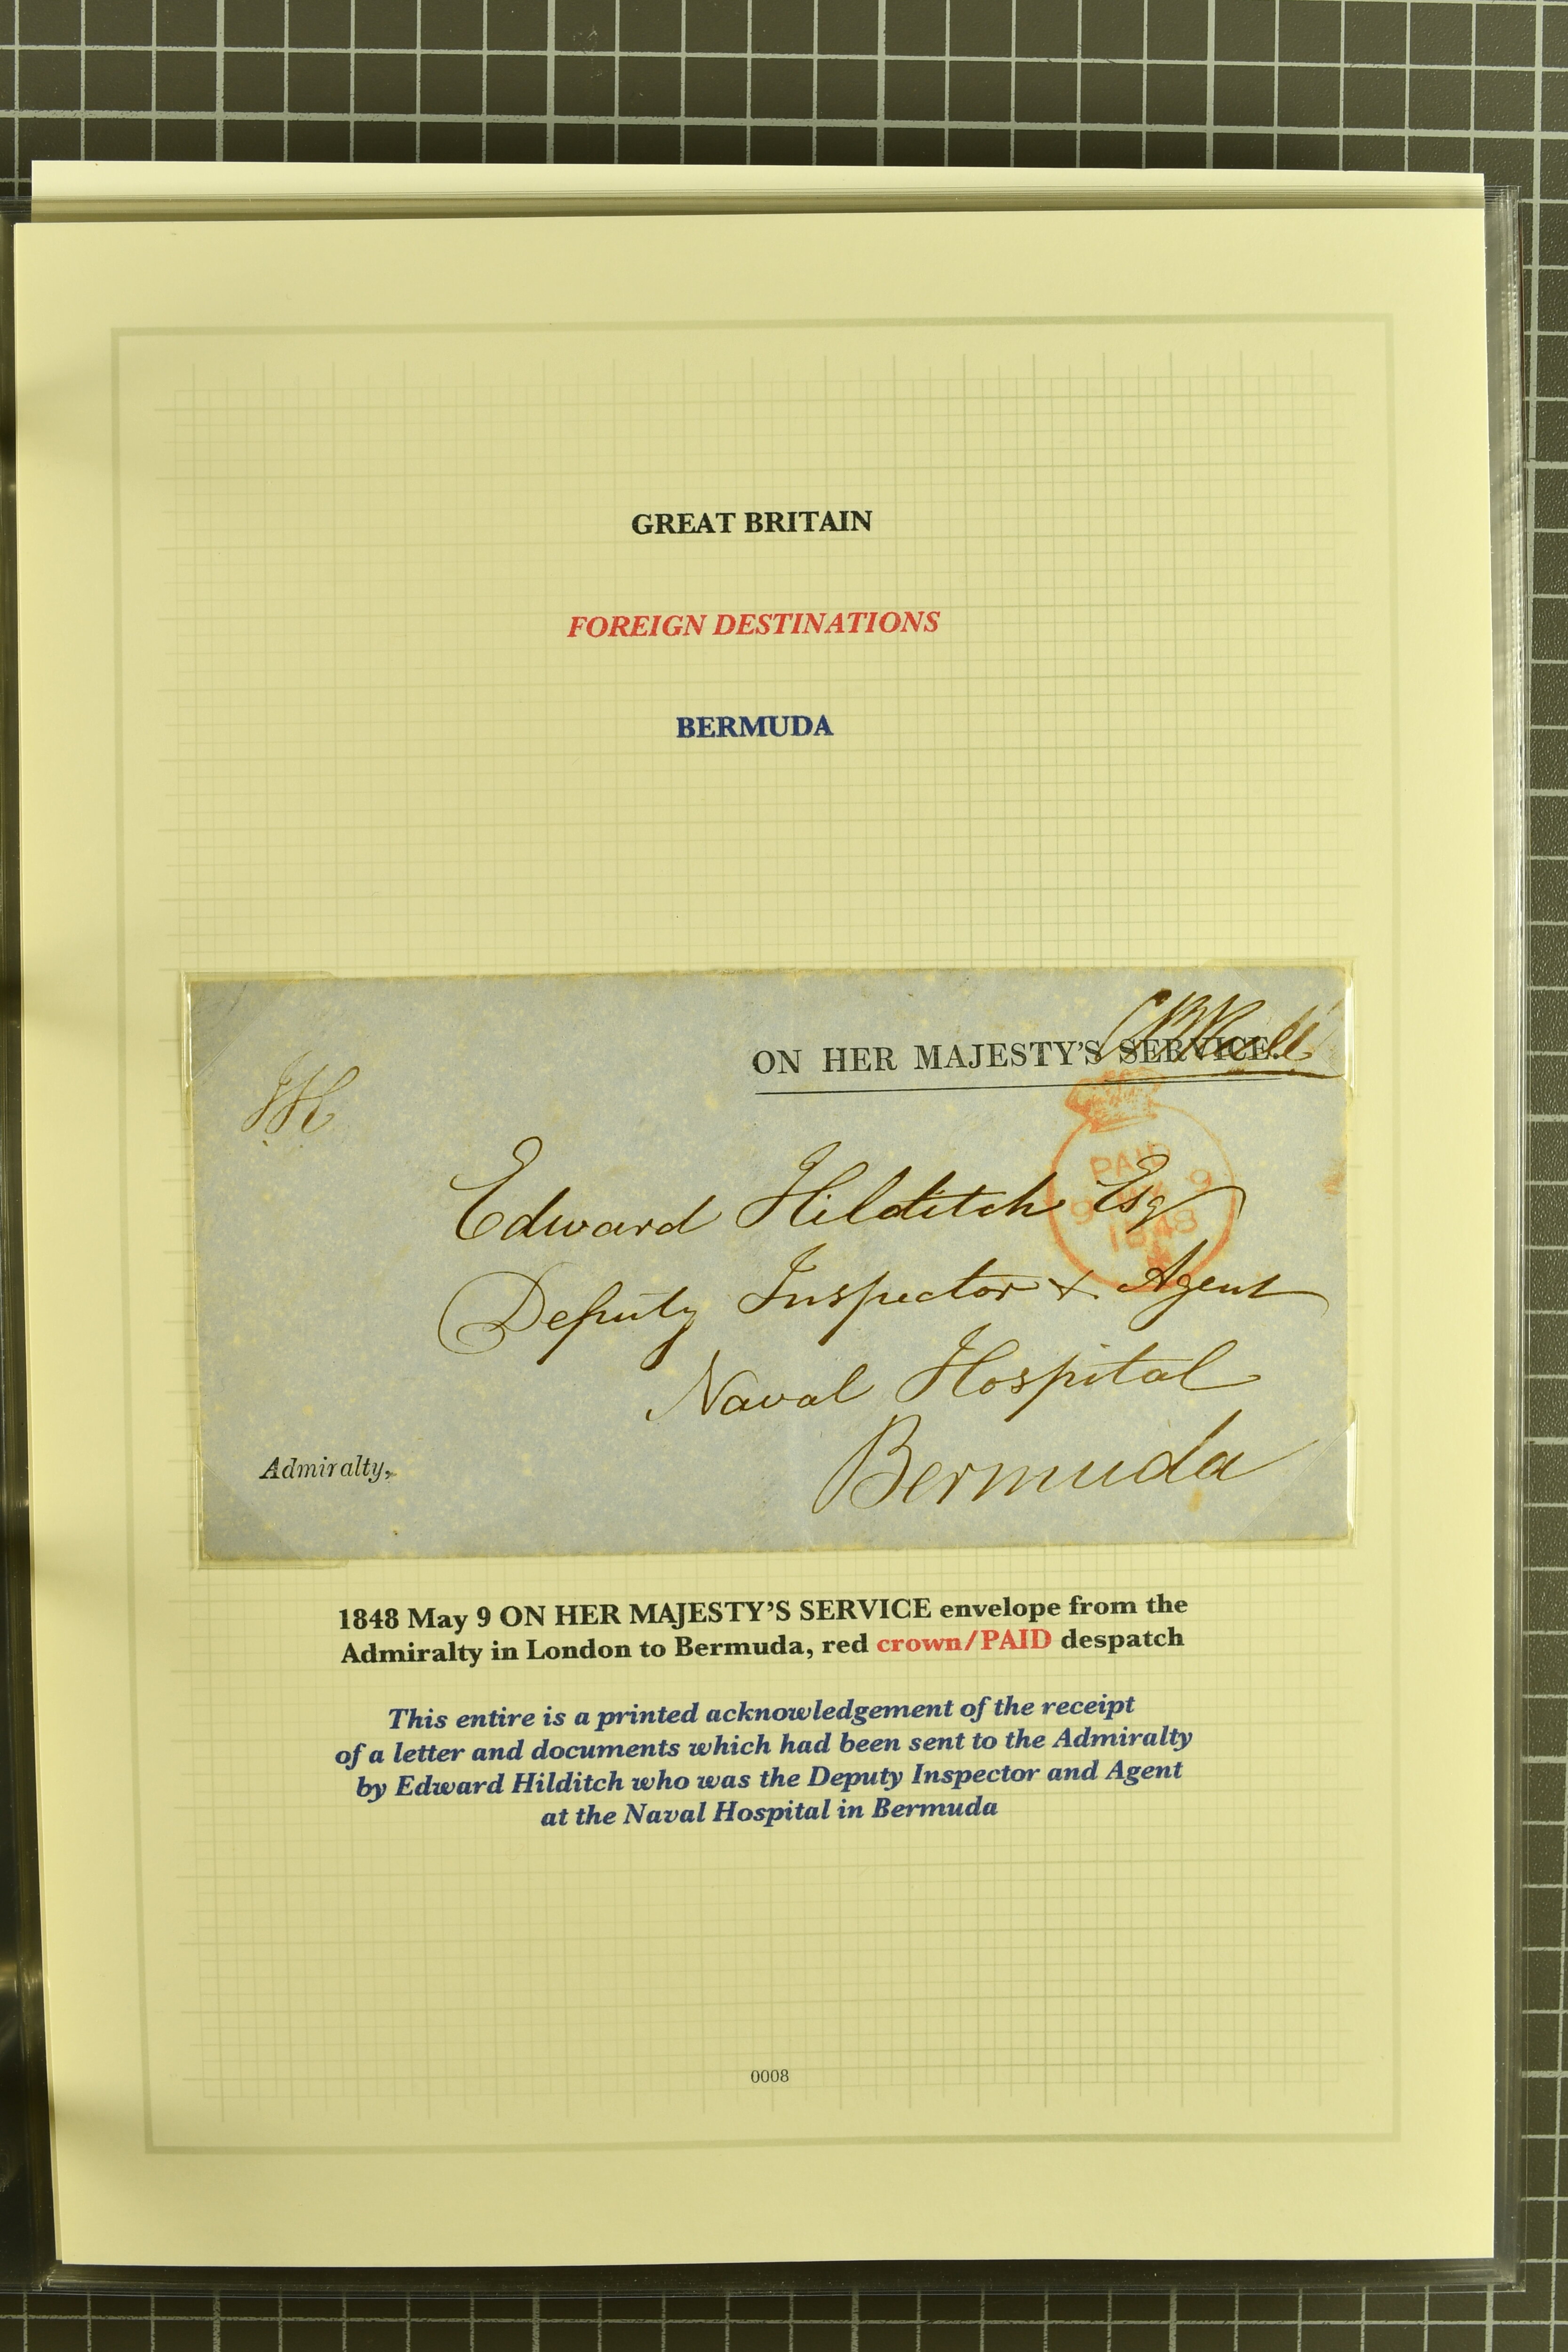 GREAT BRITAIN
FOREIGN DESTINATIONS
BERMUDA
ON HER MAJESTY'S SERVICE.
PAID
9 9
1848
Edward Hilditch Esq
Deputy Inspector & Agent
Naval Hospital
Bermuda
Admiralty,
1848 May 9 ON HER MAJESTY'S SERVICE envelope from the
Admiralty in London to Bermuda, red crown/PAID despatch
This entire is a printed acknowledgement of the receipt
of a letter and documents which had been sent to the Admiralty
by Edward Hilditch who was the Deputy Inspector and Agent
at the Naval Hospital in Bermuda
0008